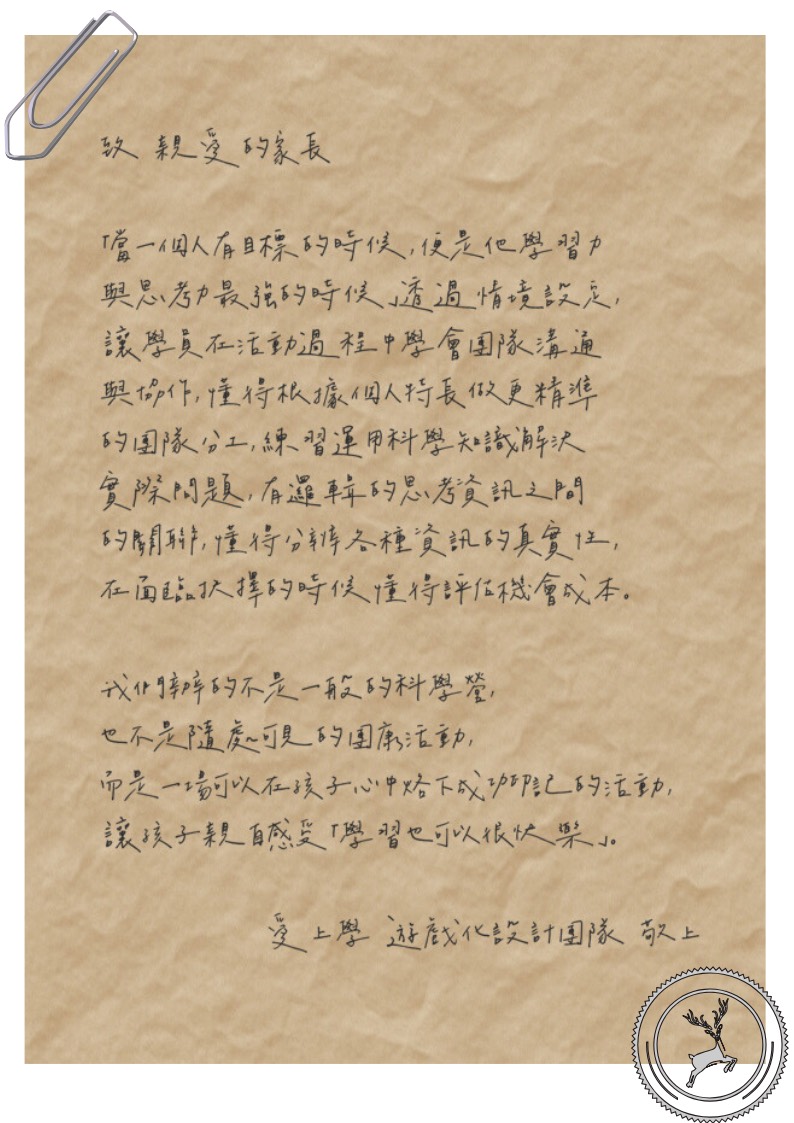 致 親愛的家長
「當一個人有目標的時候,便是他學習力
與思考力最強的時候」透過情境設定,
讓學員在活動過程中學會團隊溝通
與協作,懂得根據個人特長做更精準
的團隊分工,練習運用科學知識解決
實際問題,有邏輯的思考資訊之間
的關聯,懂得分辨各種資訊的真實性,
在面臨抉擇的時候懂得評估機會成本。
我們辦的不是一般的科學營,
也不是隨處可見的團康活動,
而是一場可以在孩子心中烙下成功印記的活動,
讓孩子親自感受「學習也可以很快樂」。
愛上學 遊戲化設計團隊 敬上